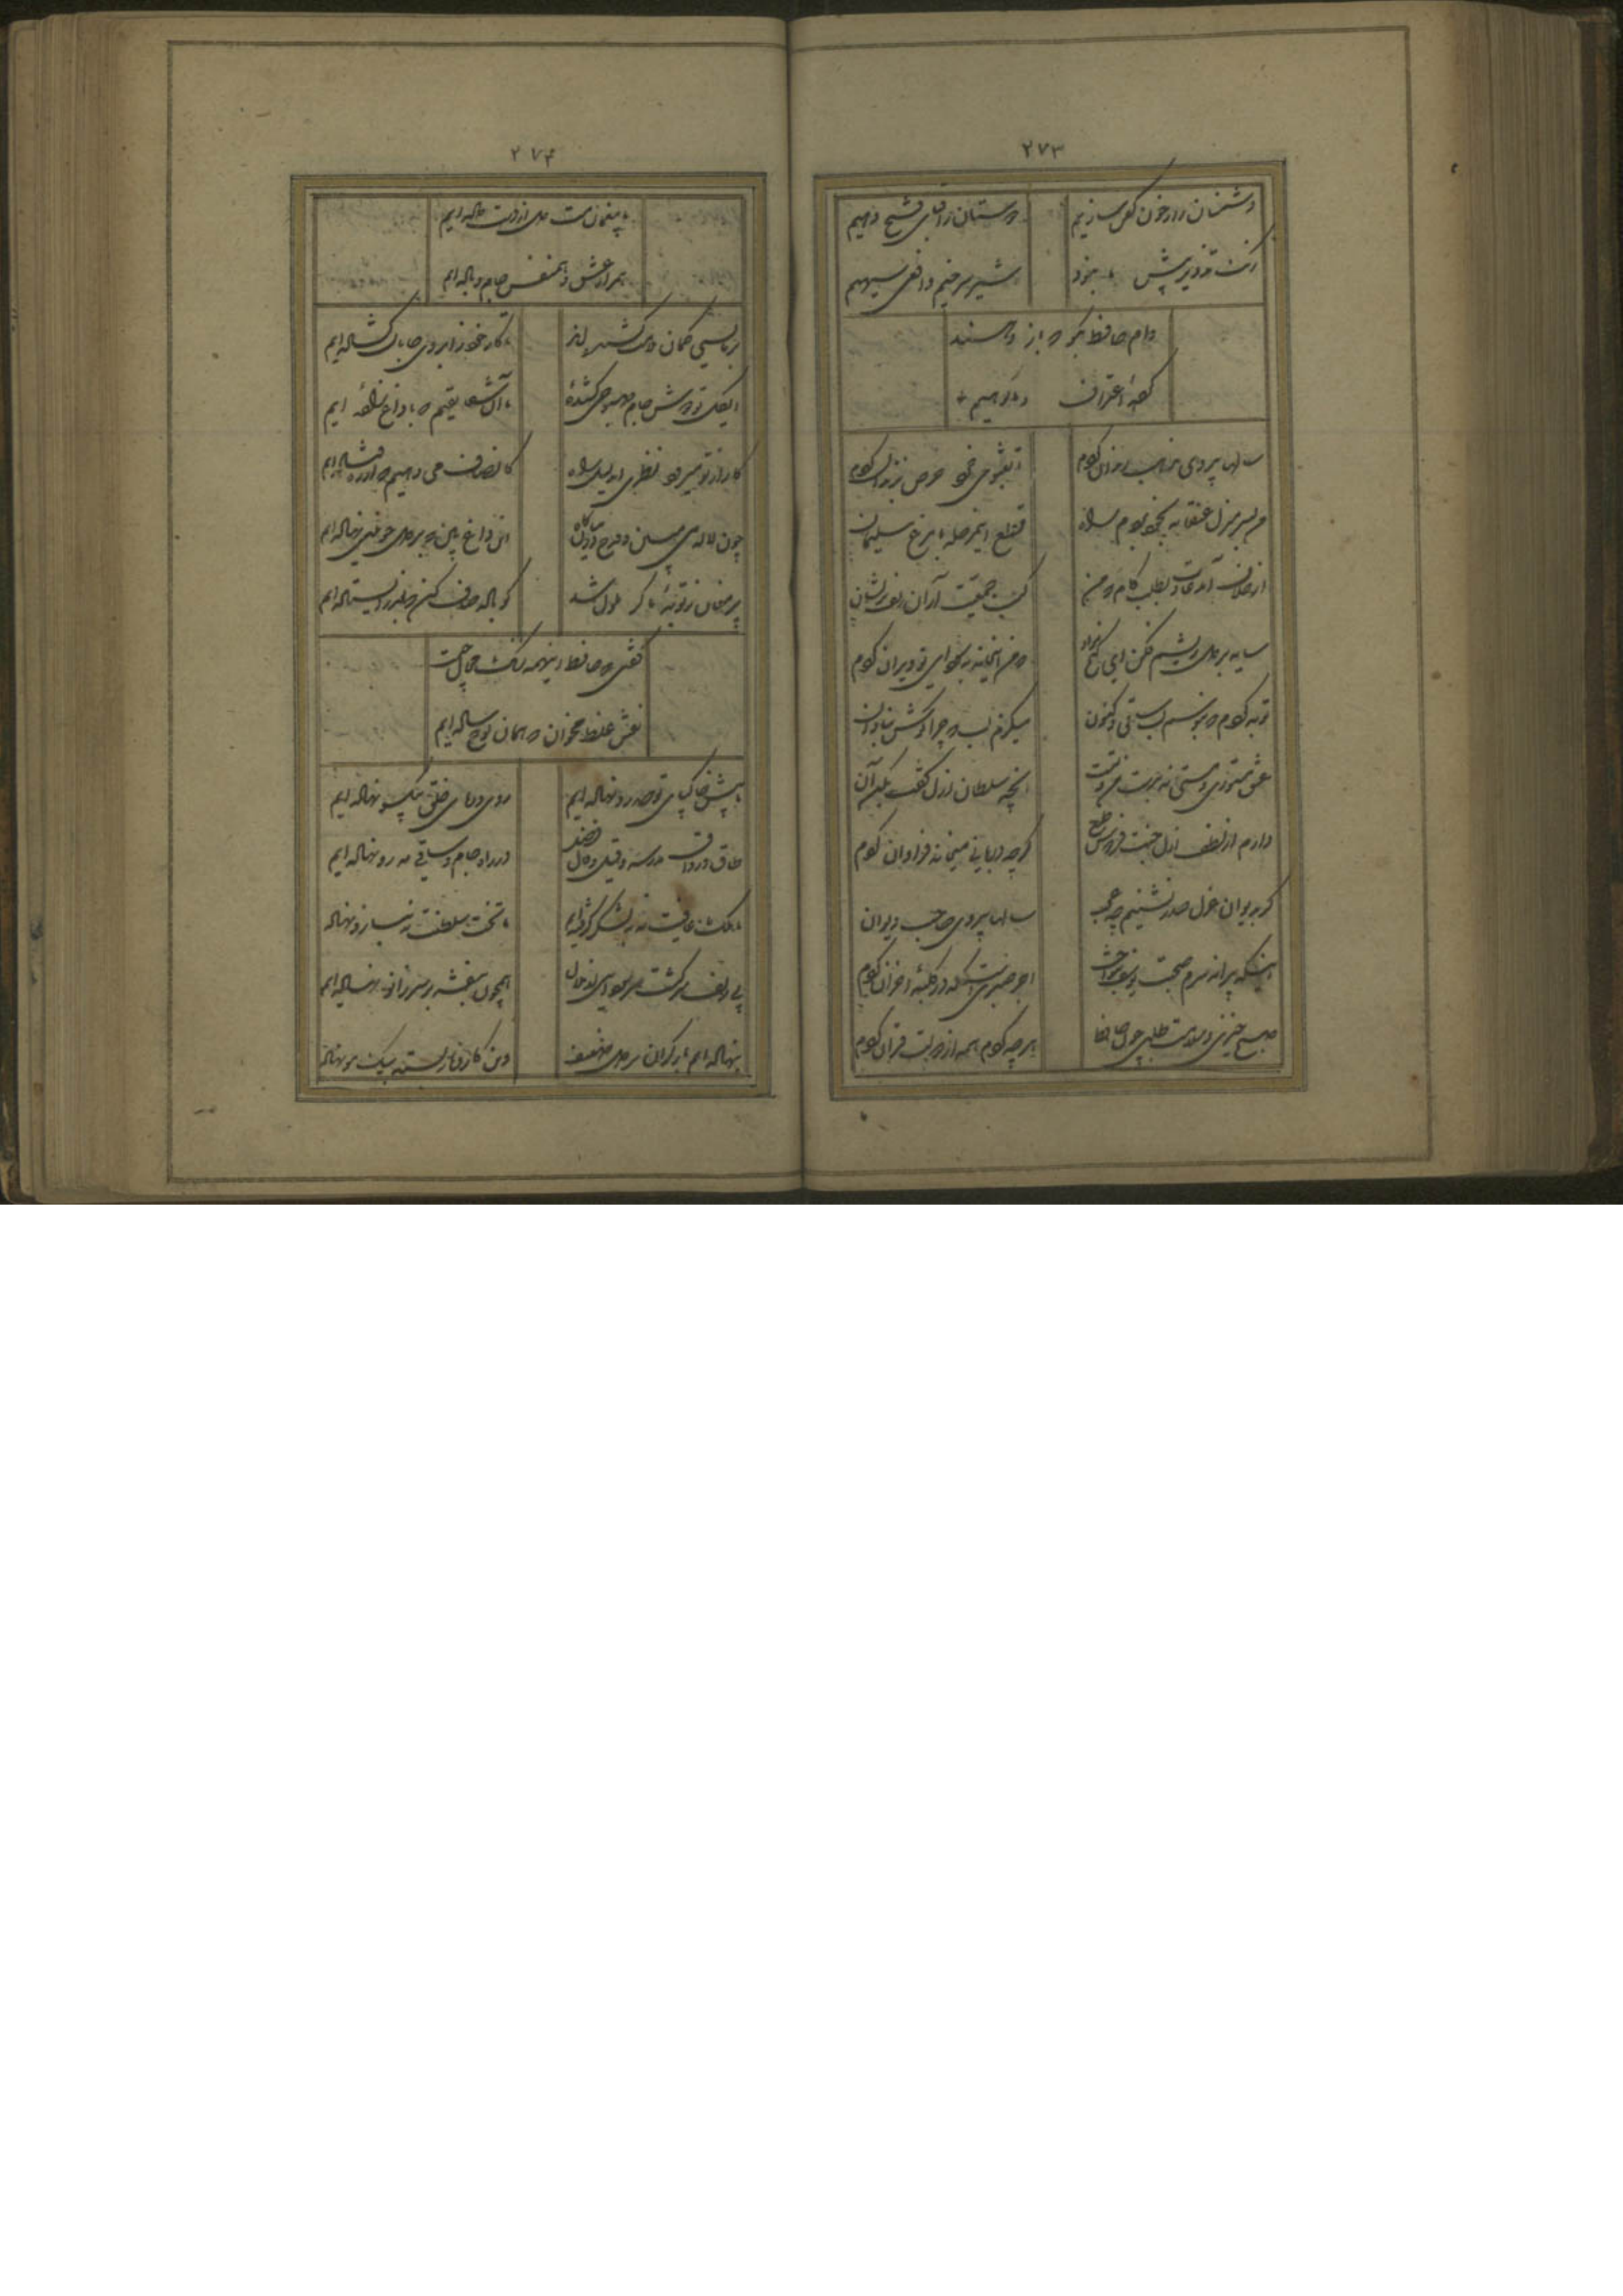 ۲۷۳
دشمنان را ز خون کفن سازیم
دوستان را قبای فتح دهیم
رنگ تزویر پیش ما نبود
شیر سرخیم و افعی سیهیم
وام حافظ بگو که باز دهند
کرده اعتراف و ما گوهیم
سالها پیروی مذهب رندان کردم
تا بفتوی خرد حرص بزندان کردم
من بسر منزل عنقا نه بخود بردم راه
قطع این مرحله با مرغ سلیمان
از خلاف آمد عادت بطلب کام که من
کسب جمعیت از آن زلف پریشان
سایه بر دل ریشم فکن ای گنج مراد
که من این خانه بسودای تو ویران کردم
توبه کردم که نبوسم لب ساقی و کنون
میگزم لب که چرا گوش بنادان
نقش مستوری و مستی نه بدست من و تست
آنچه سلطان ازل گفت بکن آن
دارم از لطف ازل جنت فردوس طمع
گرچه دربانی میخانه فراوان کردم
گر بدیوان غزل صدر نشینم چه عجب
سالها پیروی صاحب دیوان
اینکه پیرانه سرم صحبت یوسف بنواخت
اجر صبریست که در کلبه احزان کردم
صبح خیزی و سلامت طلبی چون حافظ
هرچه کردم همه از دولت قرآن کردم
۲۷۴
ما بیغمان مست دل از دست داده ایم
همراز عشق و همنفس جام و باده ایم
بر ما بسی کمان ملامت کشیده اند
تا کار خود ز ابروی جانان گشاده ایم
ای گل تو دوش جام صبوحی کشیده
ما آن شقایقیم که با داغ زاده ایم
کار از تو میرود نظری ای دلیل راه
کانصاف می دهیم و از ره فتاده ایم
چون لاله می مبین و قدح در میان کار
این داغ بین که بر دل خونین نهاده ایم
پیر مغان ز توبه ما گر ملول شد
گو باده صاف کن که بعذر ایستاده ایم
گفتی که حافظ اینهمه رنگ و خیال چیست
نقش غلط مخوان که همان لوح ساده ایم
ما پیش خاک پای تو صد رو نهاده ایم
روی و ریای خلق بیکسو نهاده ایم
طاق و رواق مدرسه و قیل و قال فضل
در راه جام و ساقی مه رو نهاده ایم
ما ملک عافیت نه بلشکر گرفته ایم
ما تخت سلطنت نه ببازو نهاده
بی زلف سرکشت سر سودایی از ملال
همچون بنفشه بر سر زانو نهاده ایم
بنهاده ایم بار گران بر دل ضعیف
وین کار و بار بسته بیک مو نهاده